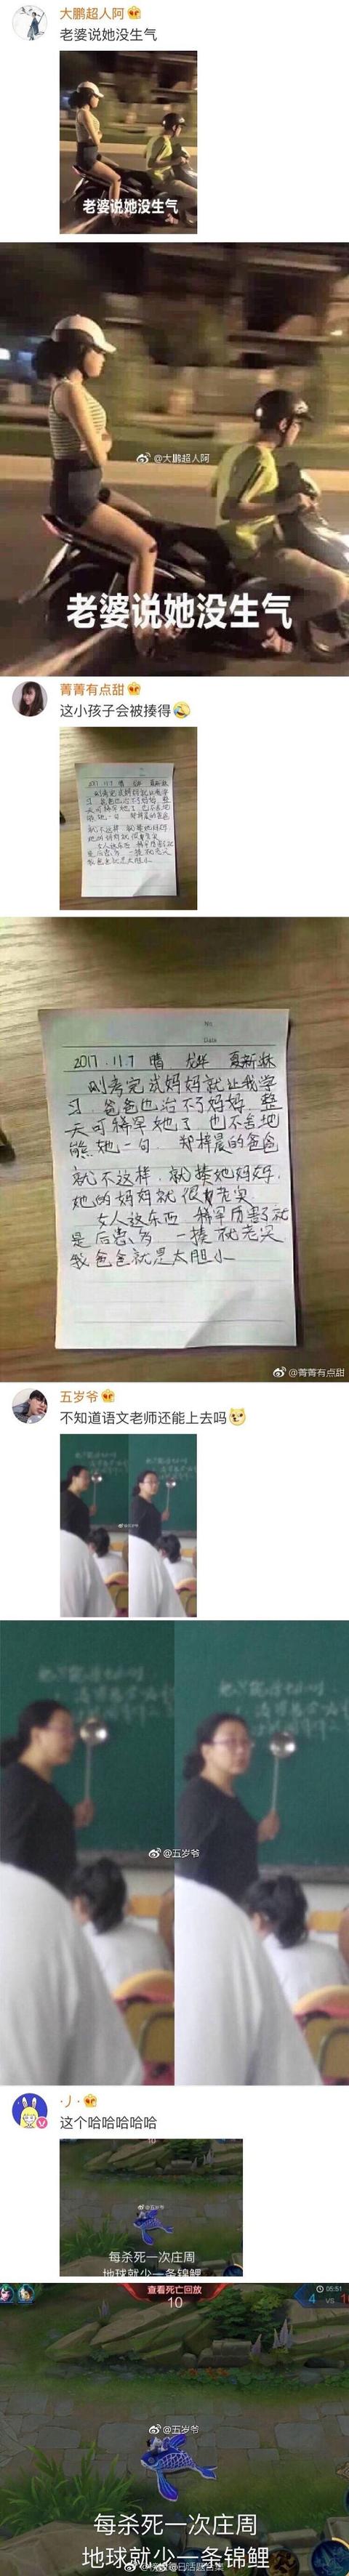 大鹏超人阿
老婆说她没生气
老婆说她没生气
@大鹏超人阿
老婆说她没生气
菁菁有点甜
这小孩子会被揍得
2017.11.7 晴
No.
Date
2017.11.7 晴 龙华 夏新妹
刚考完试妈妈就让我学
习，爸爸也治不了妈妈，整
天可稀罕她了，也不舍地
熊她一句，郑梓晨的爸爸
就不这样，就揍她妈妈，
她的妈妈就很老实
女人这东西 稀罕厉害就
是后患 一揍就老实
我爸爸就是太胆小
@菁菁有点甜
五岁爷
不知道语文老师还能上去吗
@五岁爷
·丿·
这个哈哈哈哈哈
10
@五岁爷
每杀死一次庄周
地球就少一条锦鲤
查看死亡回放
10
05:51
4 VS 1
@五岁爷
每杀死一次庄周
地球就少一条锦鲤